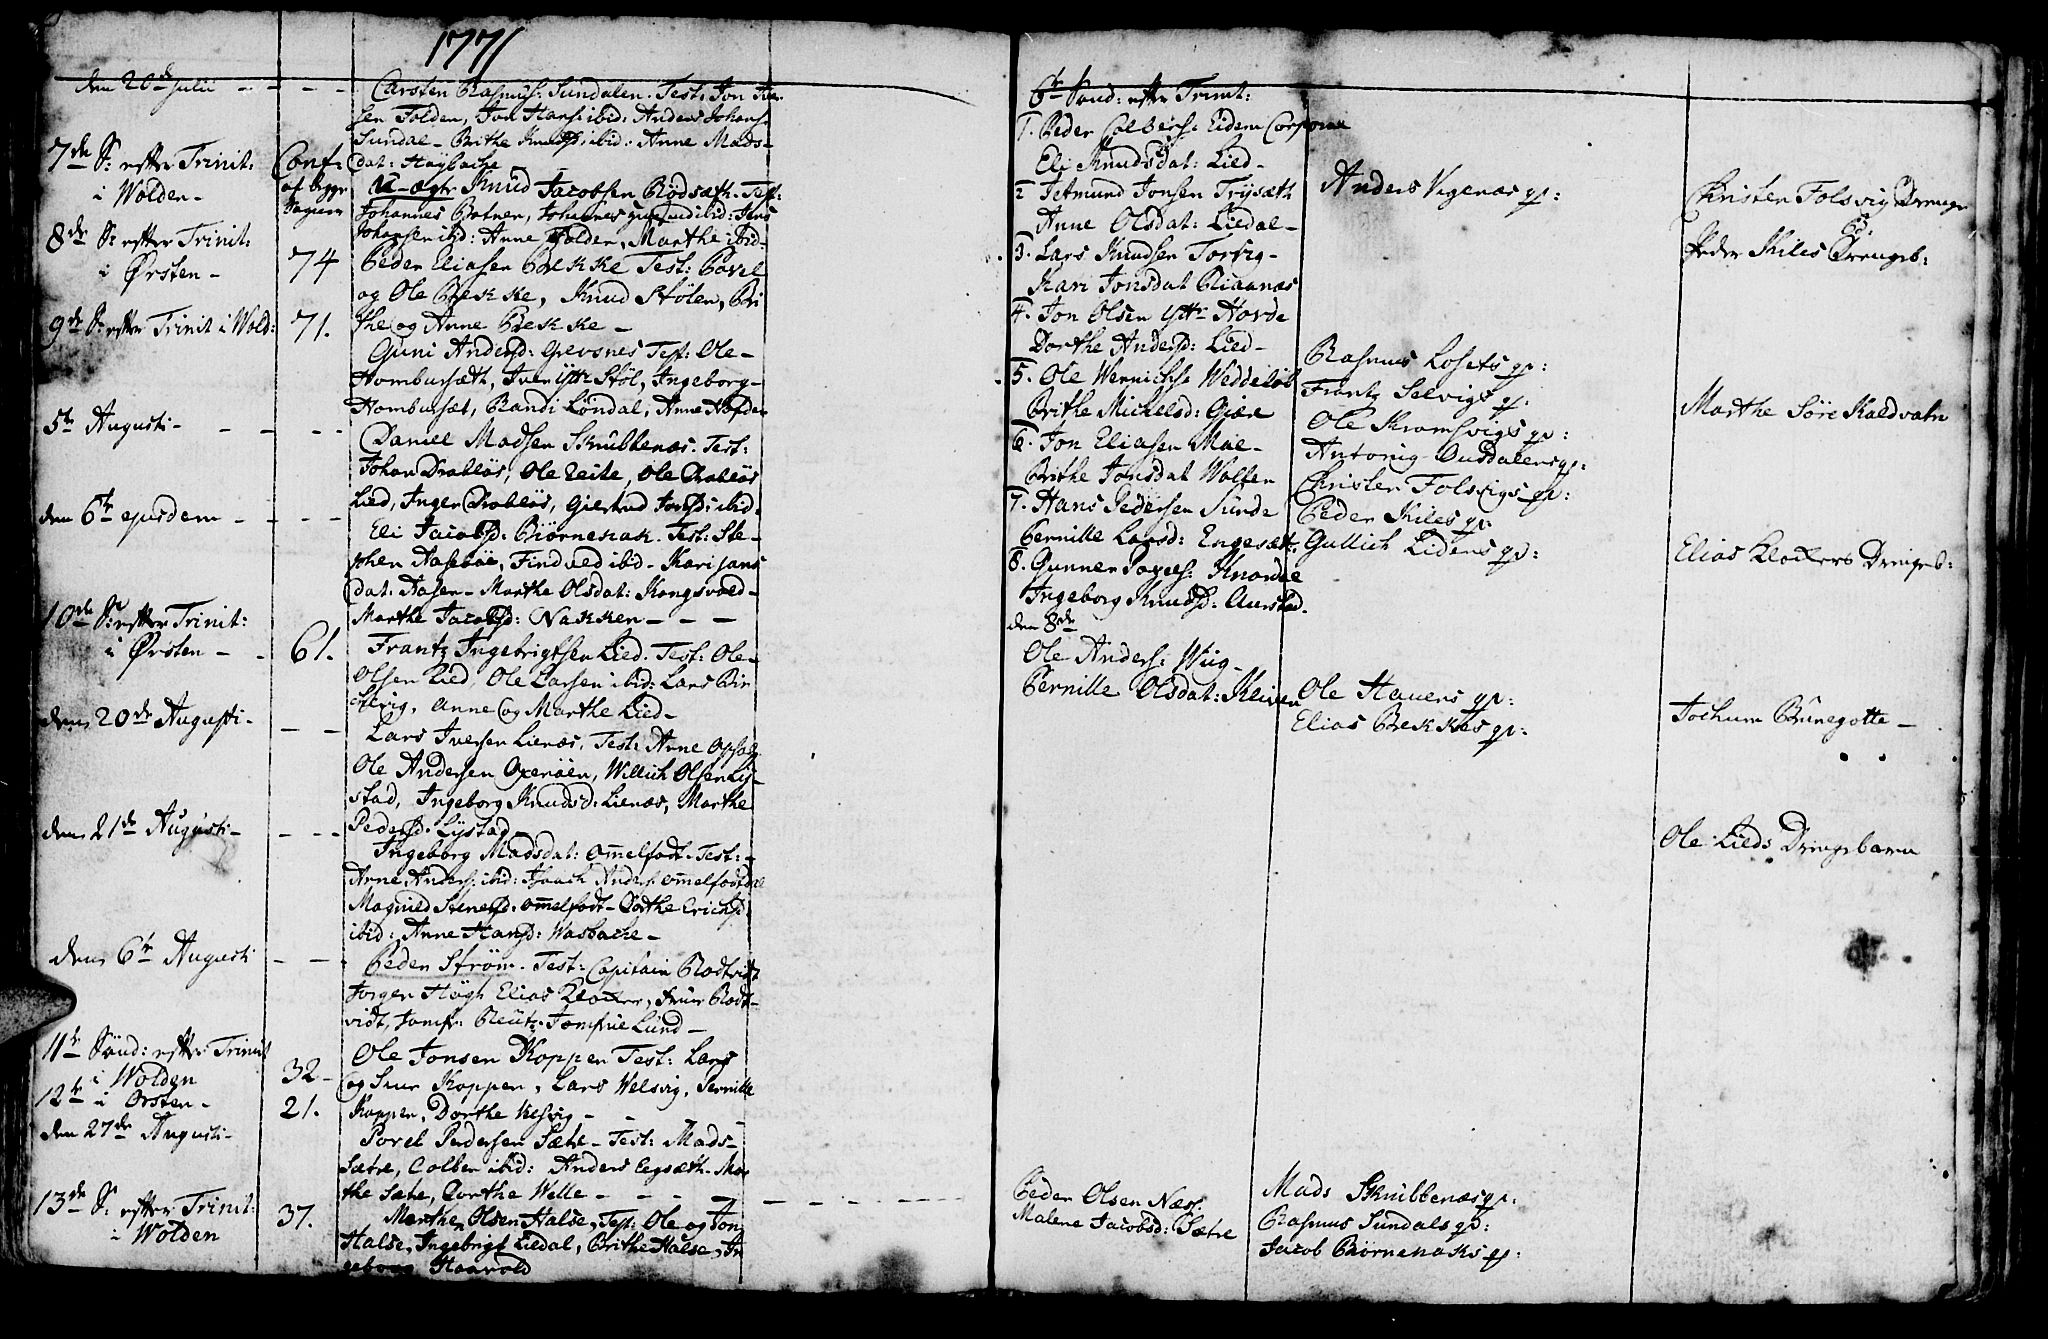 1771
den 20de Julii
Carsten Rasmus: Sundalen. Test: Jon Iver-
sen Folden, Jon Hans: ibid: Anders Johans:
Sundal - Brithe Knuds: ibid: Anne Mads-
dat: Høybache
7de S: efter Trinit:
i Wolden -
Conf:
af begge
U-ægte Knud Jacobsen Rødsæth. Test:
Johannes Botner, Johannes ibid: Jens
Johansen ibid: Anne Folden, Marthe ibid-
8de S: efter Trinit:
i Ørsten -
74
Peder Eliasen Brekke Test: Povel
og Ole Brekke, Knud Stølen, Bri
the og Anne Brekke -
9de S: efter Trinit i Wold:
71.
Guni Andersd: Grevsnes Test: Ole -
Hombursæth, Iver ytr Støl, Ingeborg -
Hombursæt, Randi Løndal, Anne Hofden
5te Augusti -
Daniel Madsen Skrubbenæs. Test:
Johan Drabløs, Ole Leite, Ole Drabløs
Lied, Inger Drabløs, Giertrud Jonsd: ibid.
den 6te ejusdem -
Eli Jacobsd: Biørnenak. Test: Ste-
phen Aasebøe, Find ved ibid - Kari Jans
dat: Aasen - Marthe Olsdat: Kongsvold -
Marthe Jacobsd: Nakken -
10de S: efter Trinit:
i Ørsten -
61.
Frantz Ingebrigtsen Lied. Test: Ole -
Olsen Lied, Ole Larsen ibid: Lars Bir
chevig, Anne og Marthe Lied -
den 20de Augusti -
Lars Iversen Lienæs, Test: Arne Opsal
Ole Andersen Oxenøen, Willich Olsen Ly-
stad, Ingeborg Knudsd: Lienæs, Marthe
Pedersd. Lystad -
den 21de Augusti -
Ingeborg Madsdat: Ommelfodt. Test: -
Arne Anders: ibid: Isaach Anders: Ommelfodtdal
Magnild Stenersd: Ommelfodt - Dorthe Erichsd
ibid: Anne Hansd: Wasbache -
den 6te Augusti
Peder Strøm. Test: Capitain Rodtvidt
Jørgen Høgh Elias Klocker, Frue Rodt-
vidt, Jomfr: Reutz. Jomfrue Lund -
11te Sönd: efter Trinit
i Wolden
32 -
Ole Jonsen Koppen Test: Lars
og Siur Koppen, Lars Welsvig, Pernille
12te i Ørsten -
21.
Koppen, Dorthe Velsvig -
den 27de Augusti -
Povel Pedersen Sætre - Test: Mads -
Sætre, Colben ibid: Anders Eegsæth. Mar
the Sætre, Dorthe Welle -
13de S: efter Trinit:
i Wolden
37.
Marthe Olsen Halse, Test: Ole og Jon
Halse, Ingebrigt Liedal, Brithe Halse, In
geborg Haavold
6te Sönd: efter Trinit:
1. Peder Colbens: Eidem Corporal
Eli Knudsdat: Lied -
2 Jetmund Jonsen Trysæth
Anne Olsdat: Liedal -
3. Lars Knudsen Torvig -
Kari Jonsdat Riaanæs
4. Jon Olsen ytr Hovde
Dorthe Andersd: Lied -
5. Ole Wernichs: Weddeløb
Brithe Michelsd: Giære
6. Jon Eliasen Mæle -
Brithe Jonsdat Wolten
7. Hans Pedersen Sunde
Pernille Larsd: Engesæt.
8. Gunner Povels: Knardal
Ingeborg Knudsd: Aurstad.
den 8de
Ole Anders: Wiig -
Pernille Olsdat: Kleven
Peder Olsen Næss.
Malene Jacobsd: Sætre
Anders Vegenæs qv:
Rasmus Losets qv:
Frantz Selvigs qv.
Ole Kramsvigs qv:
Antonig Ousdalens qv:
Christen Folsvigs qv:
Peder Kiles qv:
Gullich Lidens qv:
Ole Hauens qv:
Elias Brekkes qv:
Mads Skrubbenæs qv:
Rasmus Sundals qv:
Jacob Biørnenaks qv:
Christen Folsvig Drenge
B:
Peder Kiles Drengeb:
Marthe Søre Kaldvatn
Elias Klockers Drengeb:
Jochum Brunegotte -
Ole Lieds Drengebarn